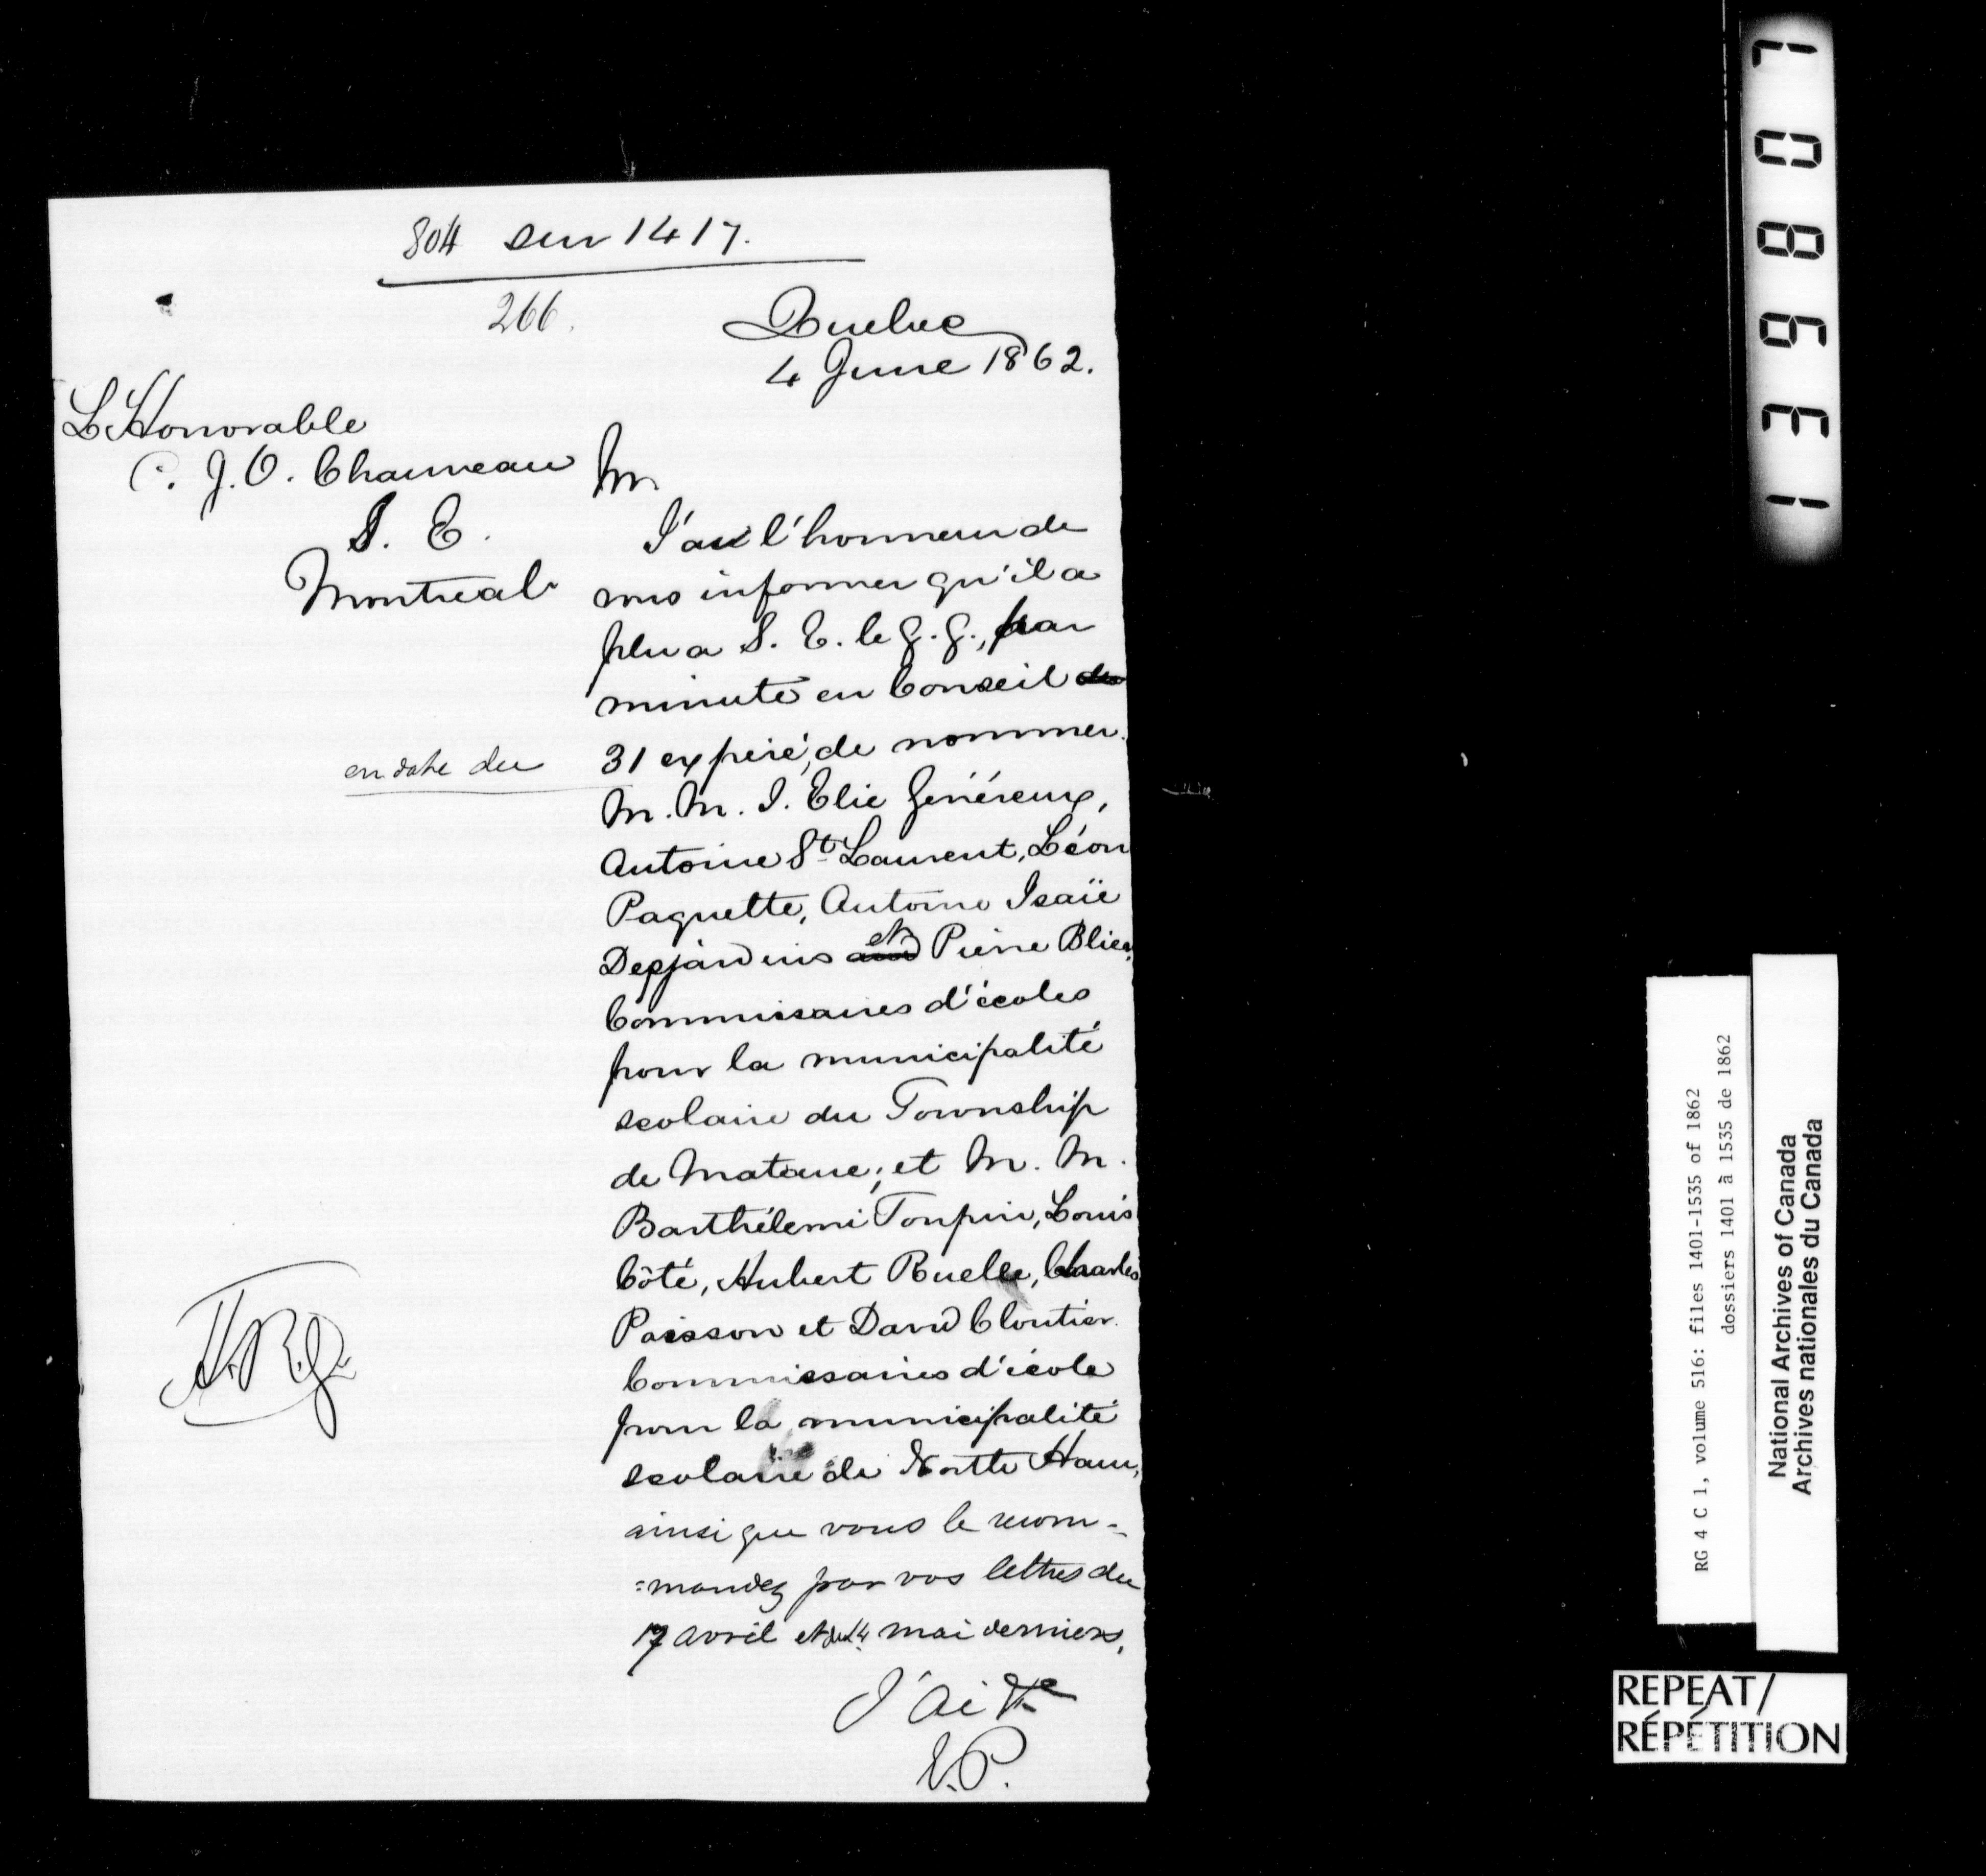 804 sur 1417.
266.
Quebec
4 June 1862.
L'Honorable
P. J. O. Chauveau
S. E.
Montreal
M.
J'ai l'honneur de
vous informer qu'il a
plu a S. E. le G. G., par
minute en Conseil du
en date du
31 expiré, de nommer
M. M. J. Elie Généreux,
Antoine St. Laurent, Léon
Paquette, Antoine Isaïe
Desjardins and et Pierre Blier,
Commissaires d'écoles
pour la municipalité
scolaire du Township
de Matane; et M. M.
Barthélemi Toupin, Louis
Côté, Hubert Ruelle, Charles
Poisson et David Cloutier
Commissaires d'école
pour la municipalité
scolaire de North Ham,
ainsi que vous le recom-
=mandez par vos lettres du
17 avril et du 14 mai derniers,
J'ai &c
E.P.
136807
RG 4 C 1, volume 516: files 1401-1535 of 1862
dossiers 1401 à 1535 de 1862
National Archives of Canada
Archives nationales du Canada
REPEAT/
RÉPÉTITION